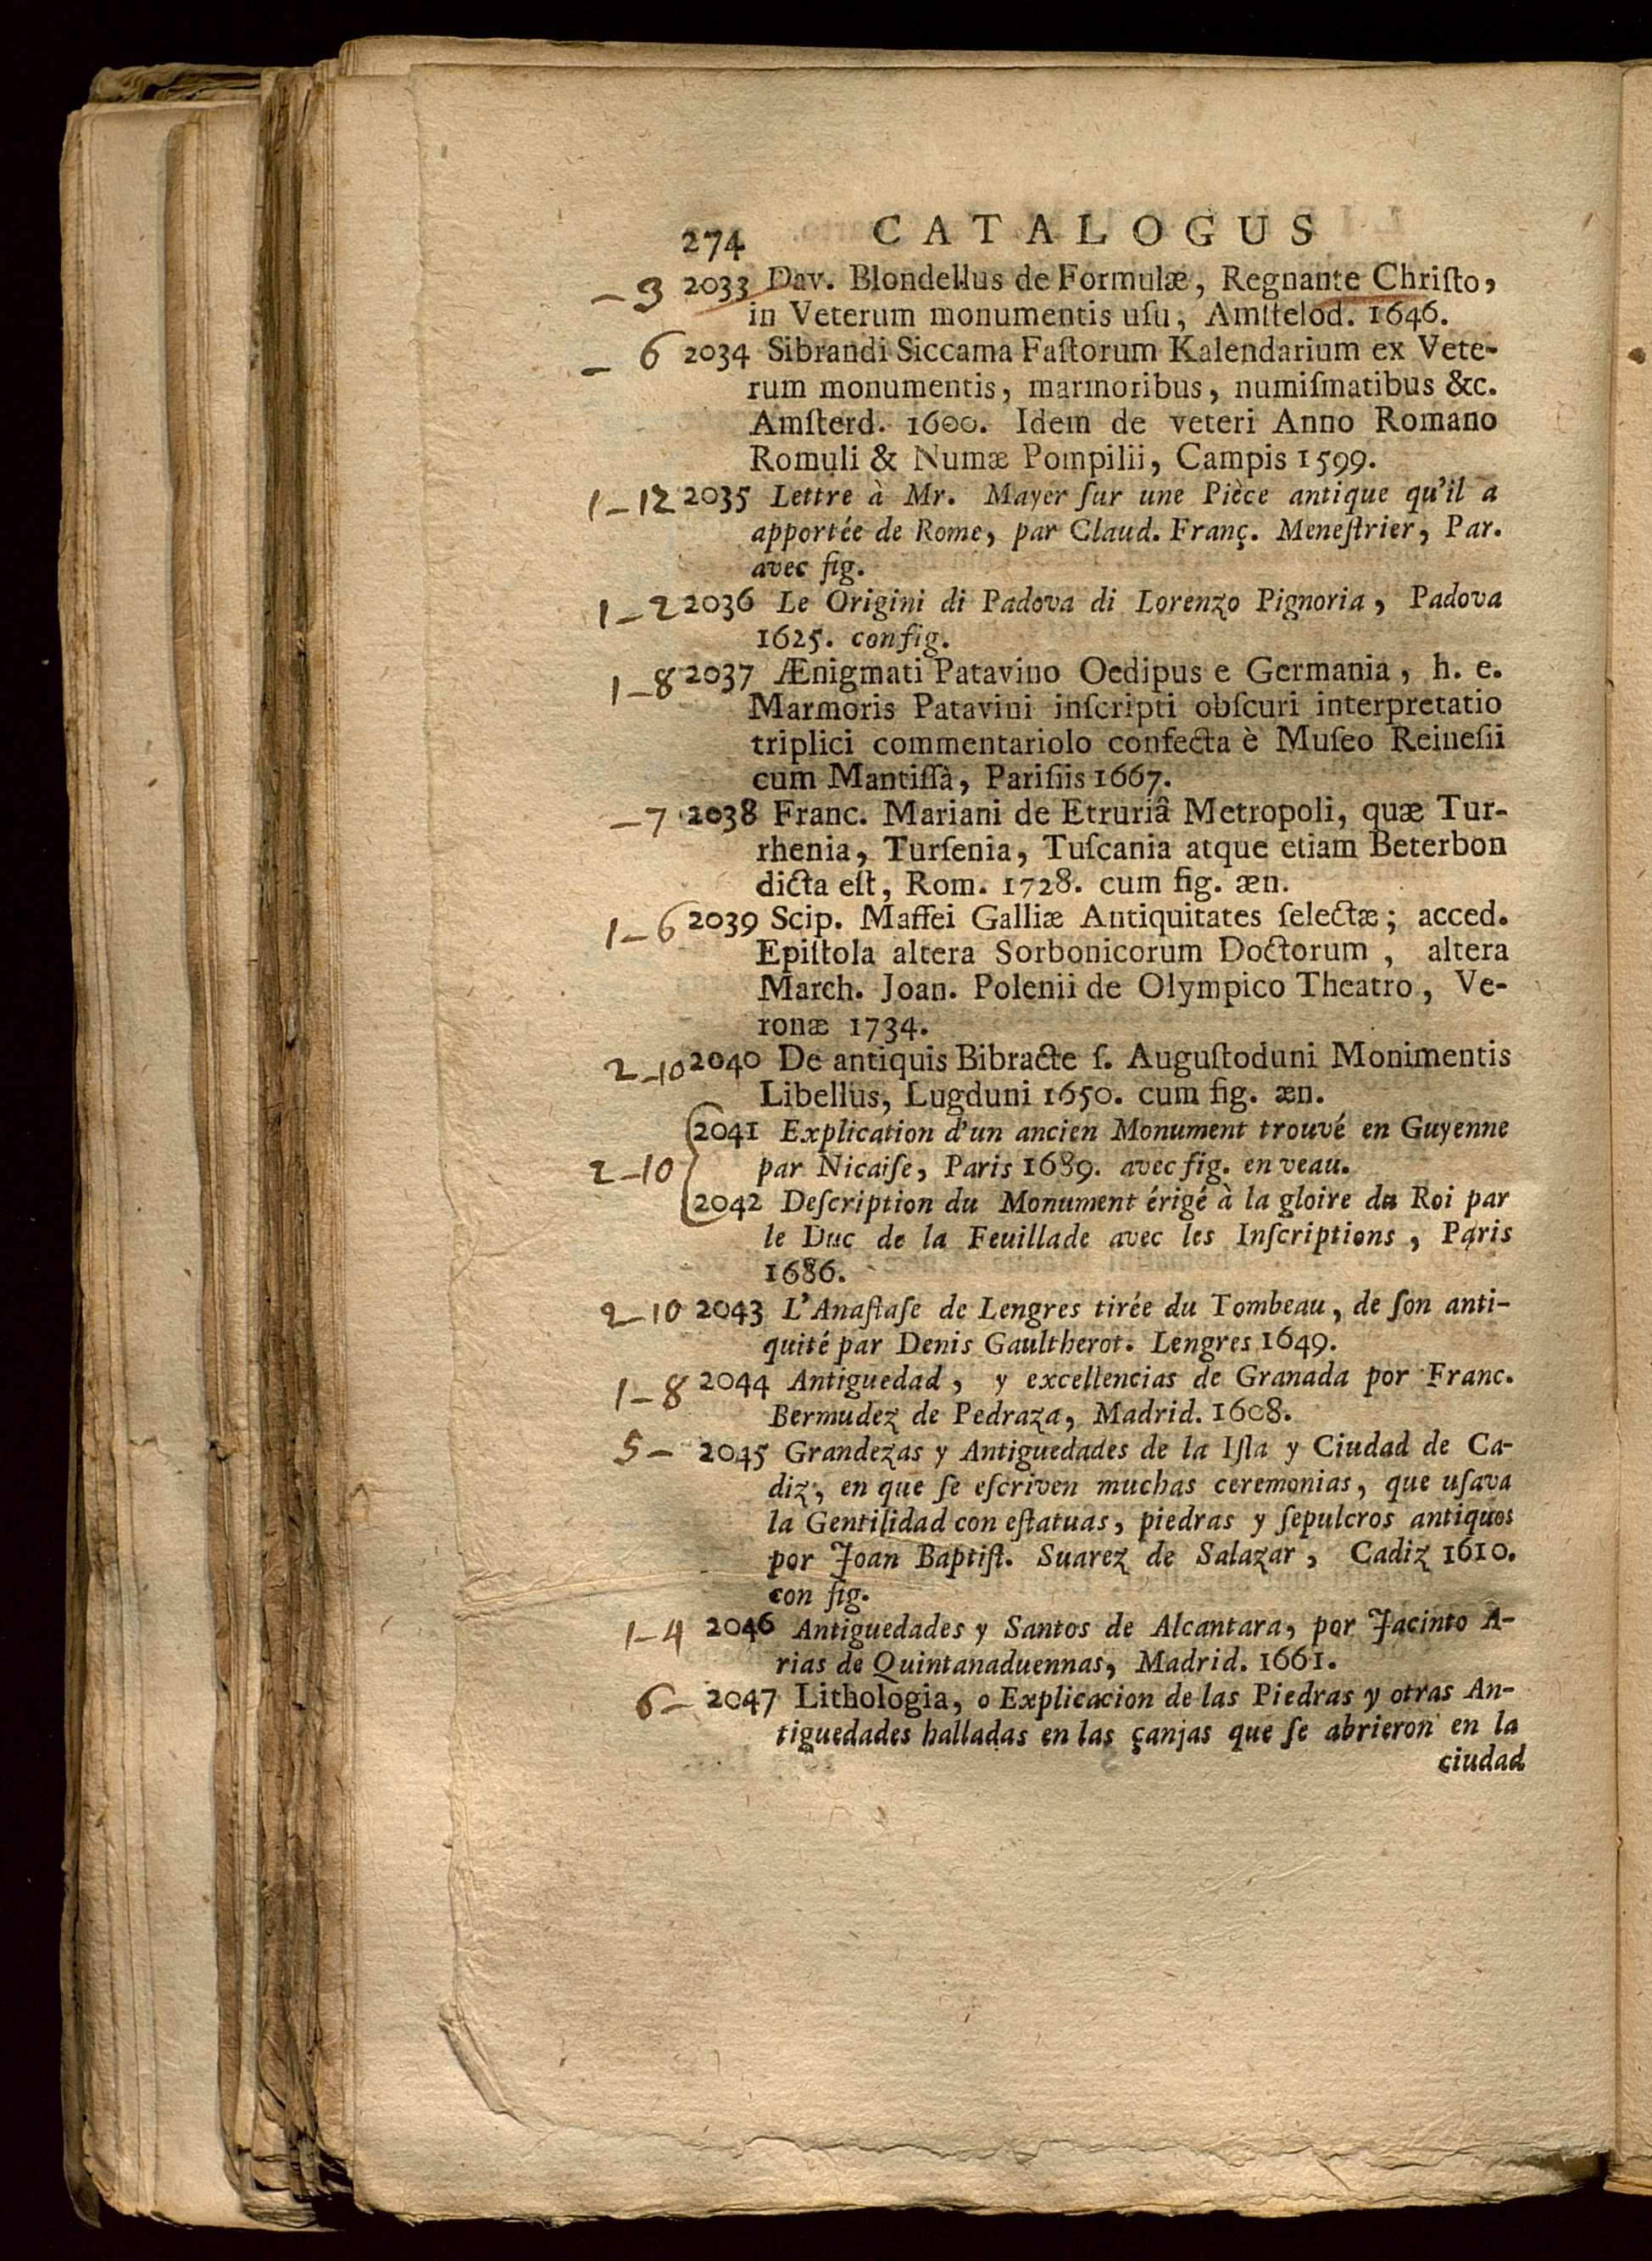 274 CATALOGUS
– 3 2033 Dav. Blondellus de Formulæ, Regnante Chriſto,
in Veterum monumentis uſu, Amſtelod. 1646.
– 6 2034 Sibrandi Siccama Faſtorum Kalendarium ex Vete-
rum monumentis, marmoribus, numiſmatibus &c.
Amſterd. 1600. Idem de veteri Anno Romano
Romuli & Numæ Pompilii, Campis 1599.
1–12 2035 Lettre à Mr. Mayer ſur une Pièce antique qu'il a
apportée de Rome, par Claud. Franç. Meneſtrier, Par.
avec fig.
1–2 2036 Le Origini di Padova di Lorenzo Pignoria, Padova
1625. con fig.
1–8 2037 Ænigmati Patavino Oedipus e Germania, h. e.
Marmoris Patavini inſcripti obſcuri interpretatio
triplici commentariolo confecta è Muſeo Reineſii
cum Mantiſſà, Pariſiis 1667.
–7 2038 Franc. Mariani de Etruriâ Metropoli, quæ Tur-
rhenia, Turſenia, Tuſcania atque etiam Beterbon
dicta eſt, Rom. 1728. cum fig. æn.
1–6 2039 Scip. Maffei Galliæ Antiquitates ſelectæ; acced.
Epiſtola altera Sorbonicorum Doctorum, altera
March. Joan. Polenii de Olympico Theatro, Ve-
ronæ 1734.
2–10 2040 De antiquis Bibracte ſ. Auguſtoduni Monimentis
Libellus, Lugduni 1650. cum fig. æn.
2041 Explication d'un ancien Monument trouvé en Guyenne
2–10 par Nicaiſe, Paris 1689. avec fig. en veau.
2042 Deſcription du Monument érigé à la gloire du Roi par
le Duc de la Feuillade avec les Inſcriptions, Paris
1686.
2–10 2043 L'Anaſtaſe de Lengres tirée du Tombeau, de ſon anti-
quité par Denis Gaultherot. Lengres 1649.
1–8 2044 Antiguedad, y excellencias de Granada por Franc.
Bermudez de Pedraza, Madrid. 1608.
5– 2045 Grandezas y Antiguedades de la Iſla y Ciudad de Ca-
diz, en que ſe eſcriven muchas ceremonias, que uſava
la Gentilidad con eſtatuas, piedras y ſepulcros antiquos
por Joan Baptiſt. Suarez de Salazar, Cadiz 1610.
con fig.
1–4 2046 Antiguedades y Santos de Alcantara, por Jacinto A-
rias de Quintanaduennas, Madrid. 1661.
6– 2047 Lithologia, o Explicacion de las Piedras y otras An-
tiguedades halladas en las çanjas que ſe abrieron en la
ciudad